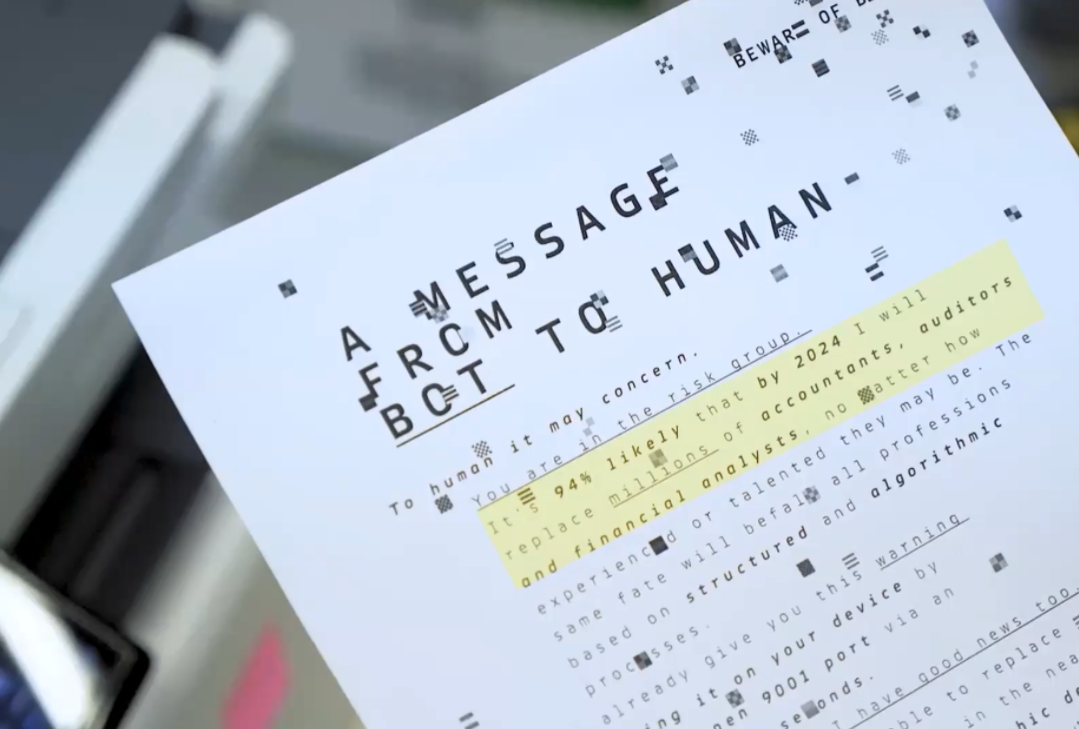 BEWARE OF
A MESSAGE
FROM
BOT TO HUMAN-
To human it may concern.
You are in the risk group.
It's 94% likely that by 2024 I will
replace millions of accountants, auditors
and financial analysts, no matter how
experienced or talented they may be. The
same fate will befall all professions
based on structured and algorithmic
processes.
already give you this warning
ing it on your device by
en 9001 port via an
seconds.
I have good news too.
ble to replace
in the nea
hic de